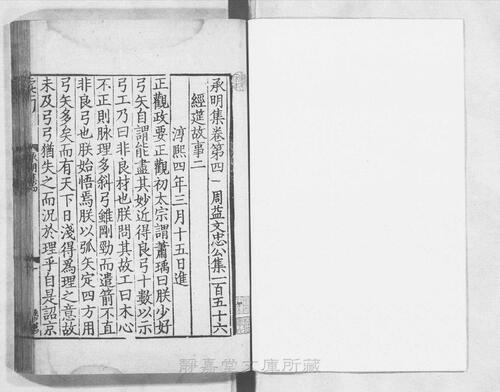 承明集卷第四 周益文忠公集一百五十六
經筵故事二
淳熙四年三月十五日進
正觀政要正觀初太宗謂蕭瑀曰朕少好
弓矢自謂能盡其妙近得良弓十數以示
弓工乃曰非良材也朕問其故工曰木心
不正則脉理多斜弓雖剛勁而遣箭不直
非良弓也朕始悟焉朕以弧矢定四方用
弓矢多矣而有天下日淺得為理之意故
未及弓弓猶失之而況於理乎自是詔京
静嘉堂文庫所蔵